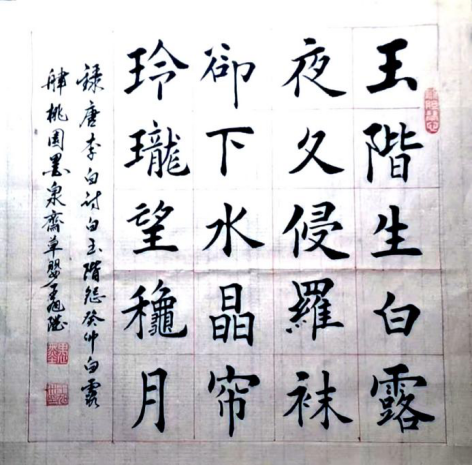 玉階生白露
夜久侵羅袜
卻下水晶帘
玲瓏望龝月
錄唐李白詩白玉階怨癸卯白露
桃園墨泉齋草